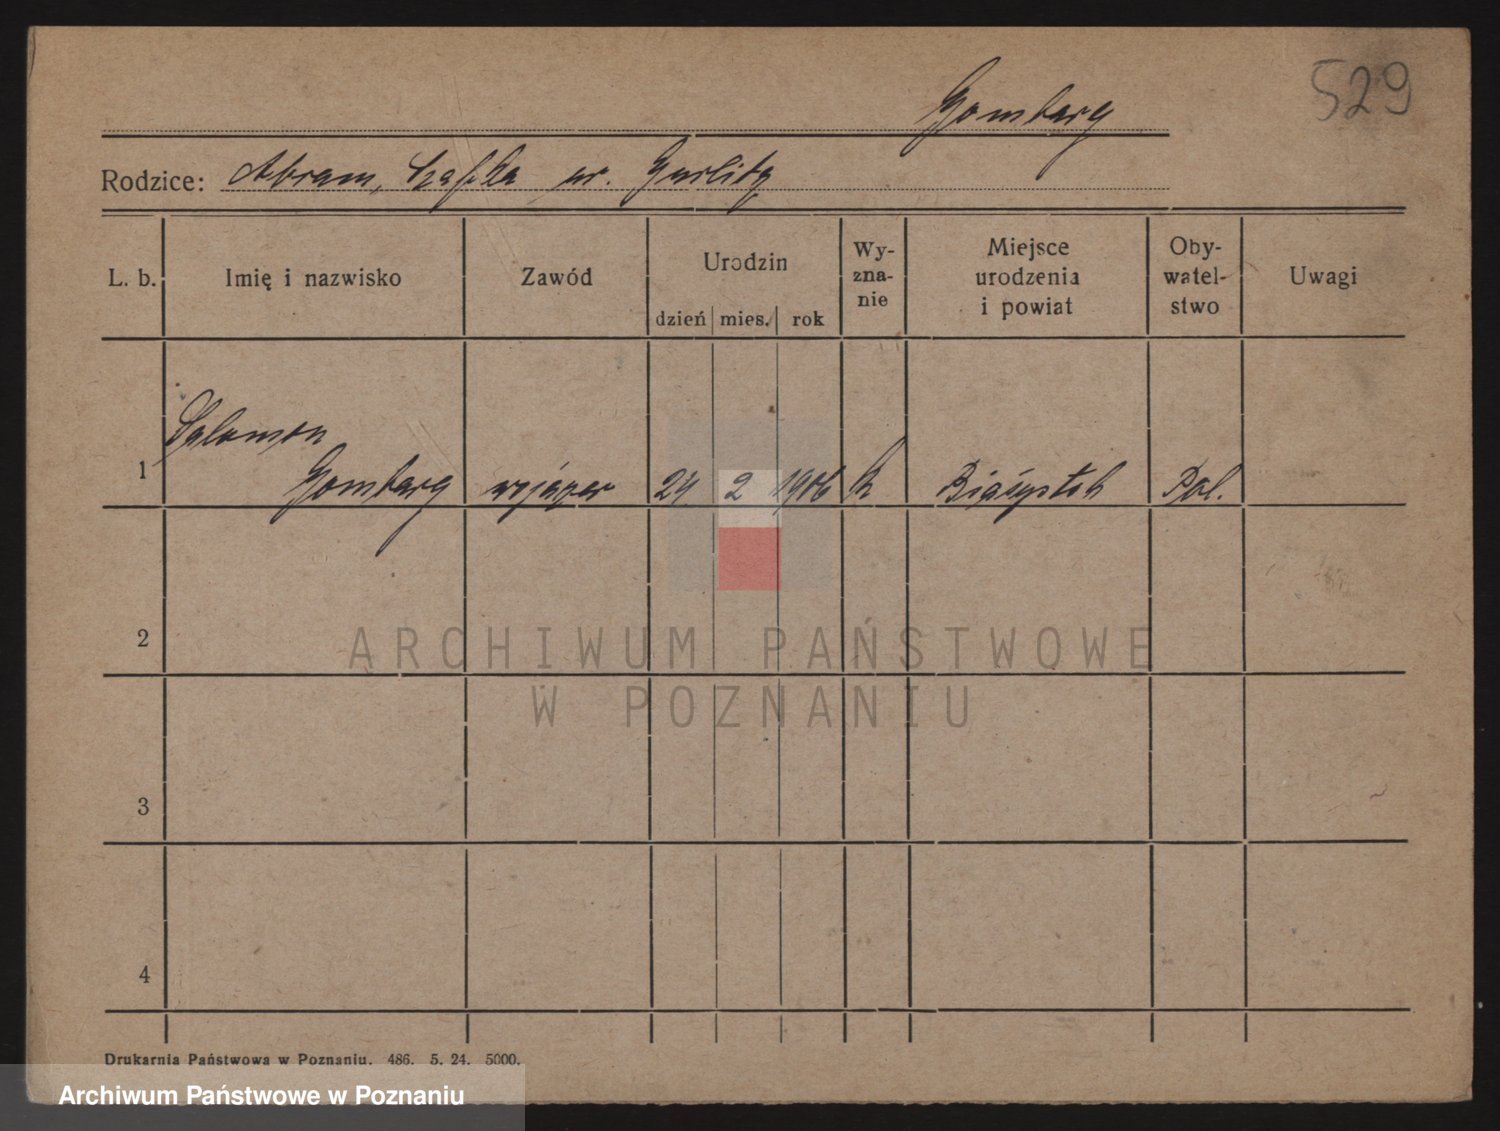 529
Gombarg
Rodzice: Abram, Szafka ur. Gurlitz
L. b. Imię i nazwisko Zawód Urodzin dzień mies. rok Wy-zna-nie Miejsce urodzenia i powiat Oby-watel-stwo Uwagi
Salomon
1 Gombarg 24 2 1906 Białystok Pol.
2
ARCHIWUM PAŃSTWOWE
W POZNANIU
3
4
Drukarnia Państwowa w Poznaniu. 486. 5. 24. 5000.
Archiwum Państwowe w Poznaniu